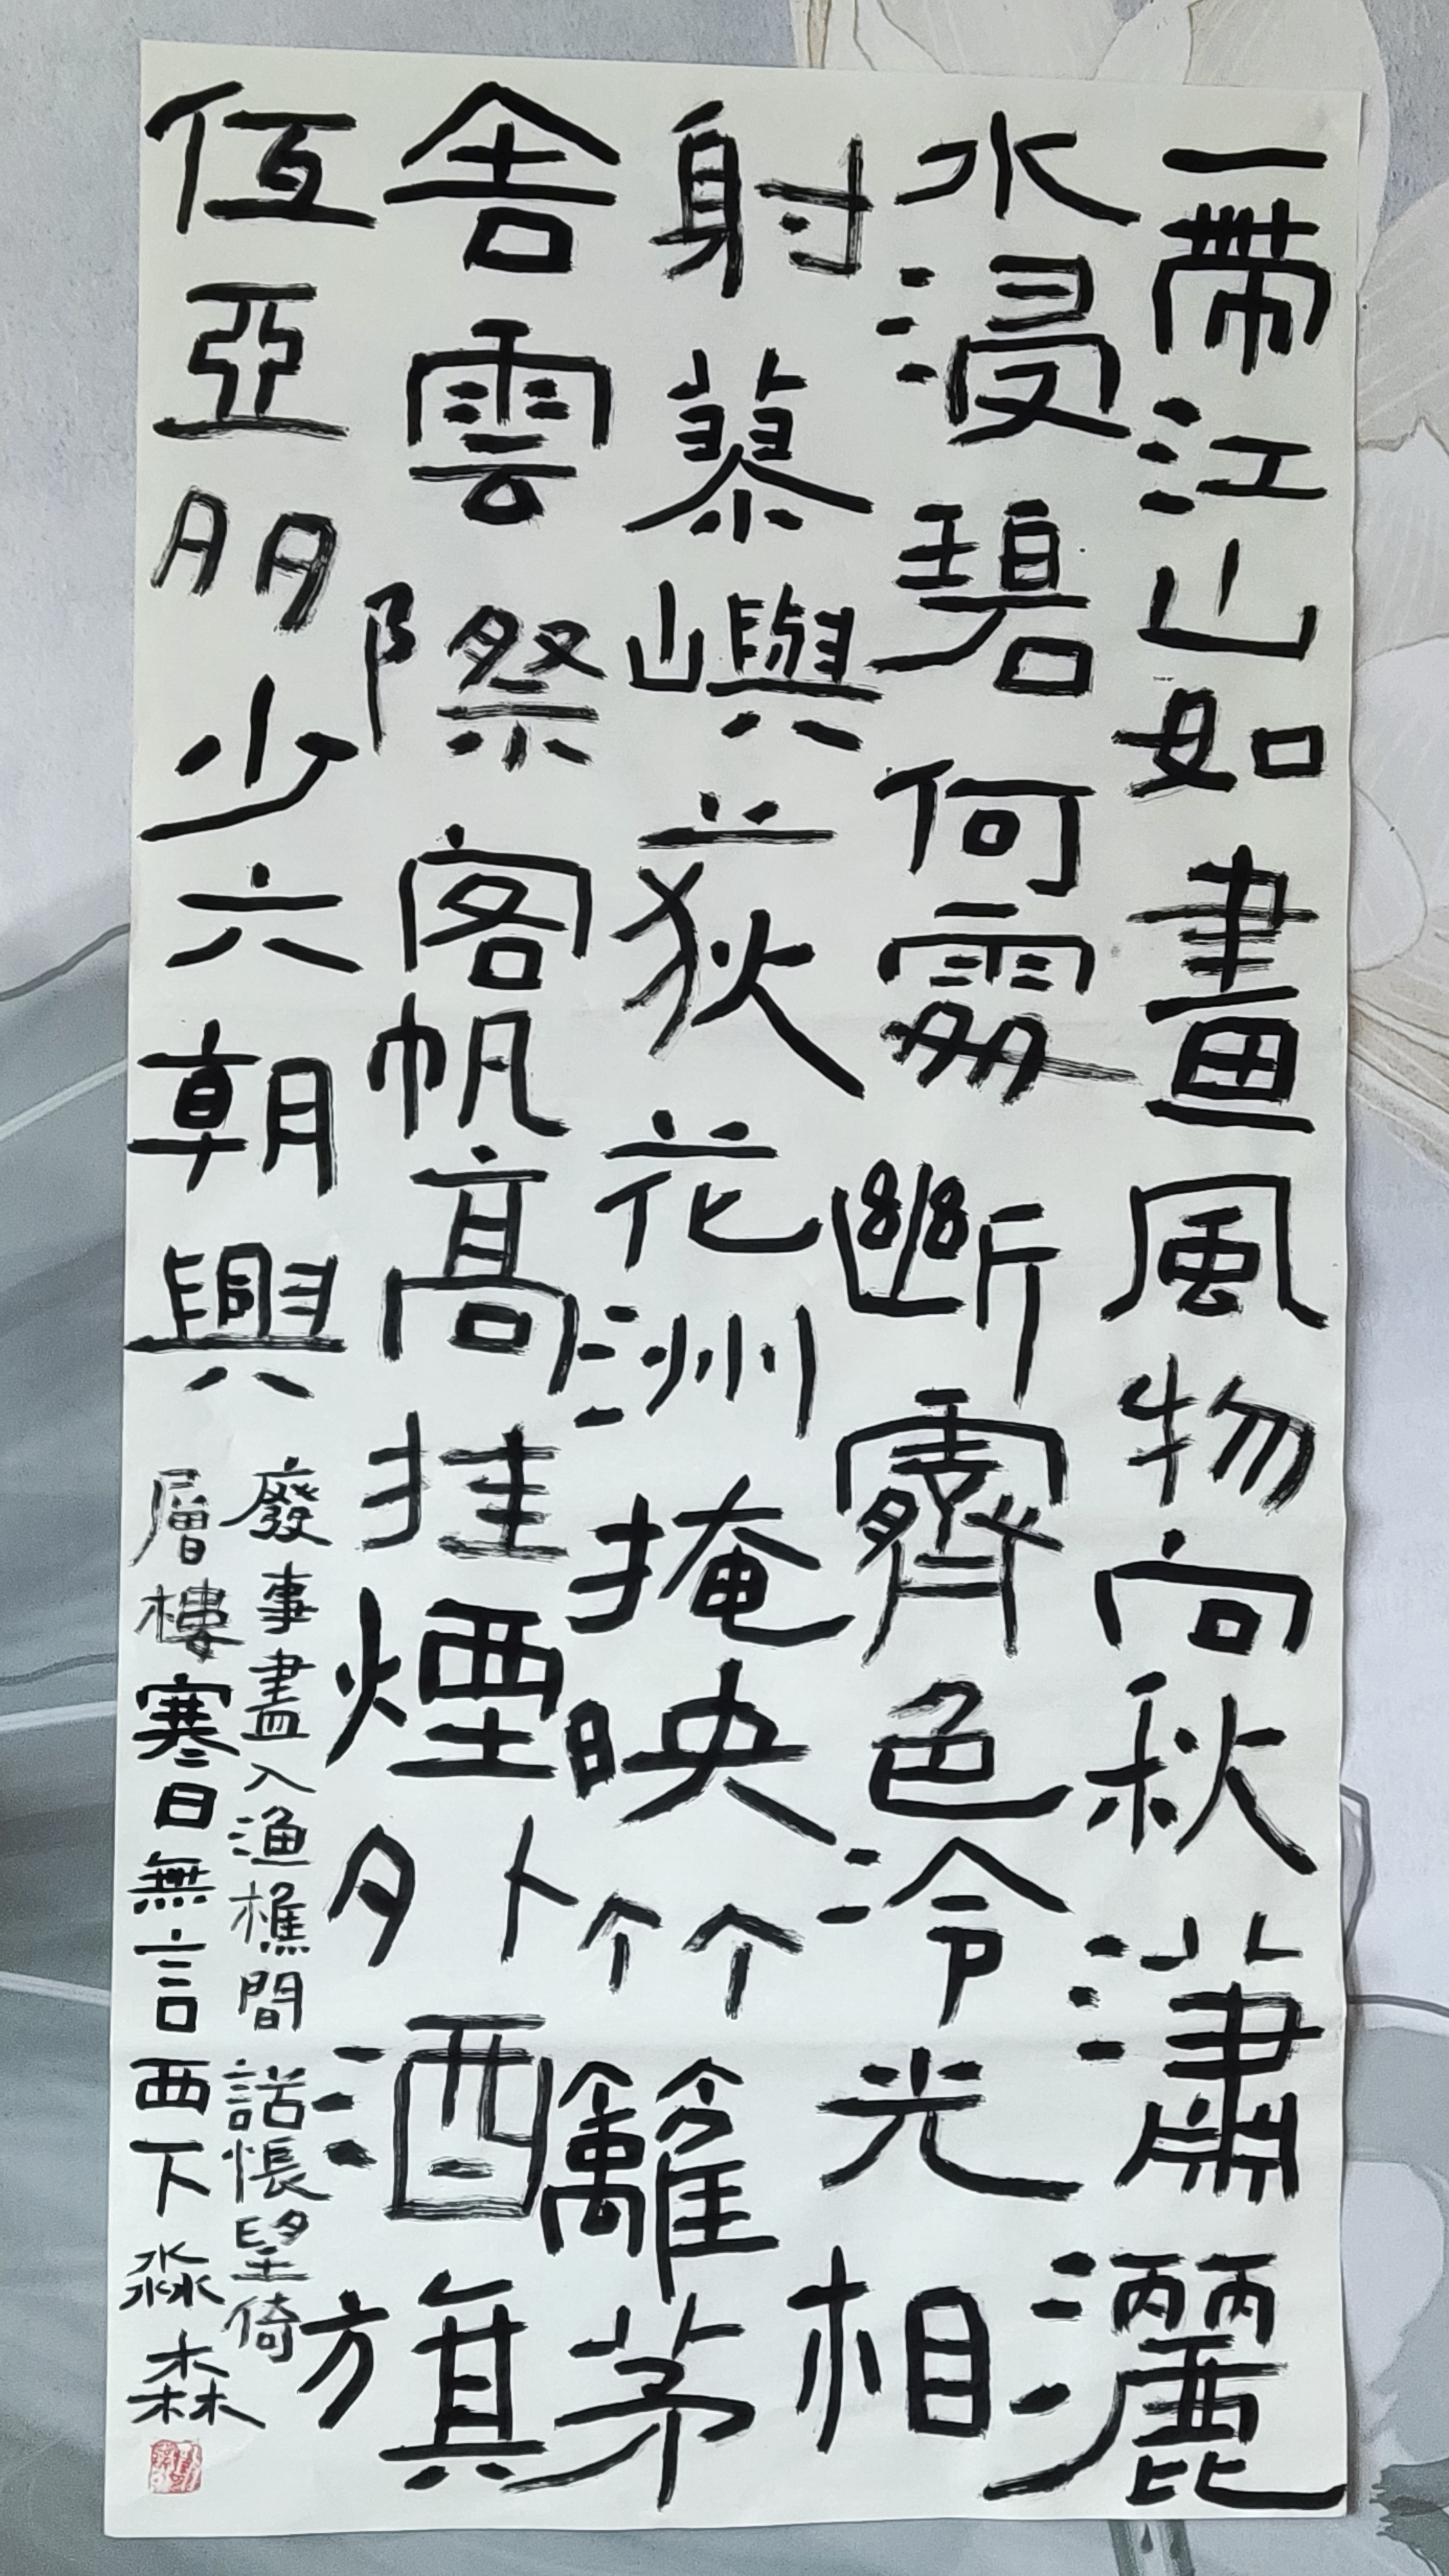 一帶江山如畫風物向秋瀟灑
水浸碧何斷霽色冷光相
射蓼嶼荻花洲掩映竹籬茅
舍雲際客帆高挂煙外酒旗
低亞多少六朝興
廢事盡入漁樵間話悵望倚
層樓寒日無言西下淼森